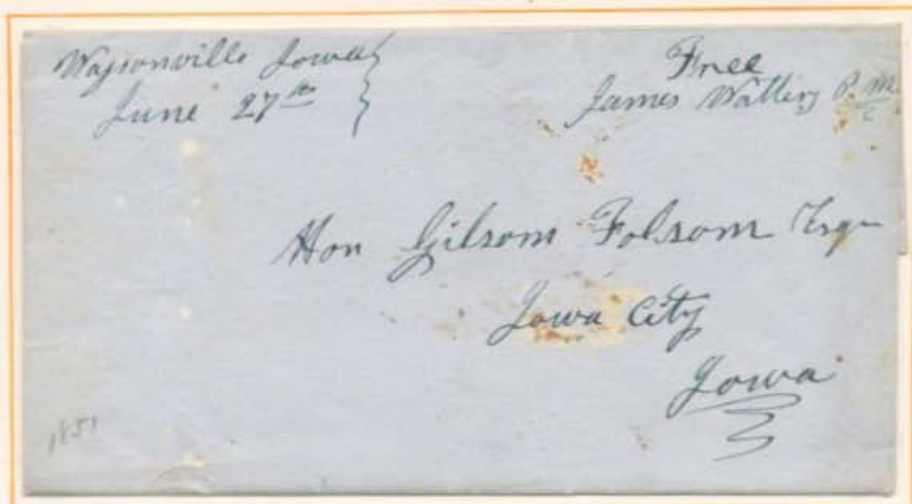 Wassonville Iowa
June 27th
Free
James Watters P.M.
Hon Gilsom Folsom Esqr
Iowa City
Iowa
1851